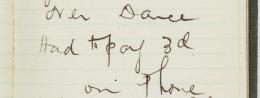 over Dance
Had to pay 3d.
on Phone